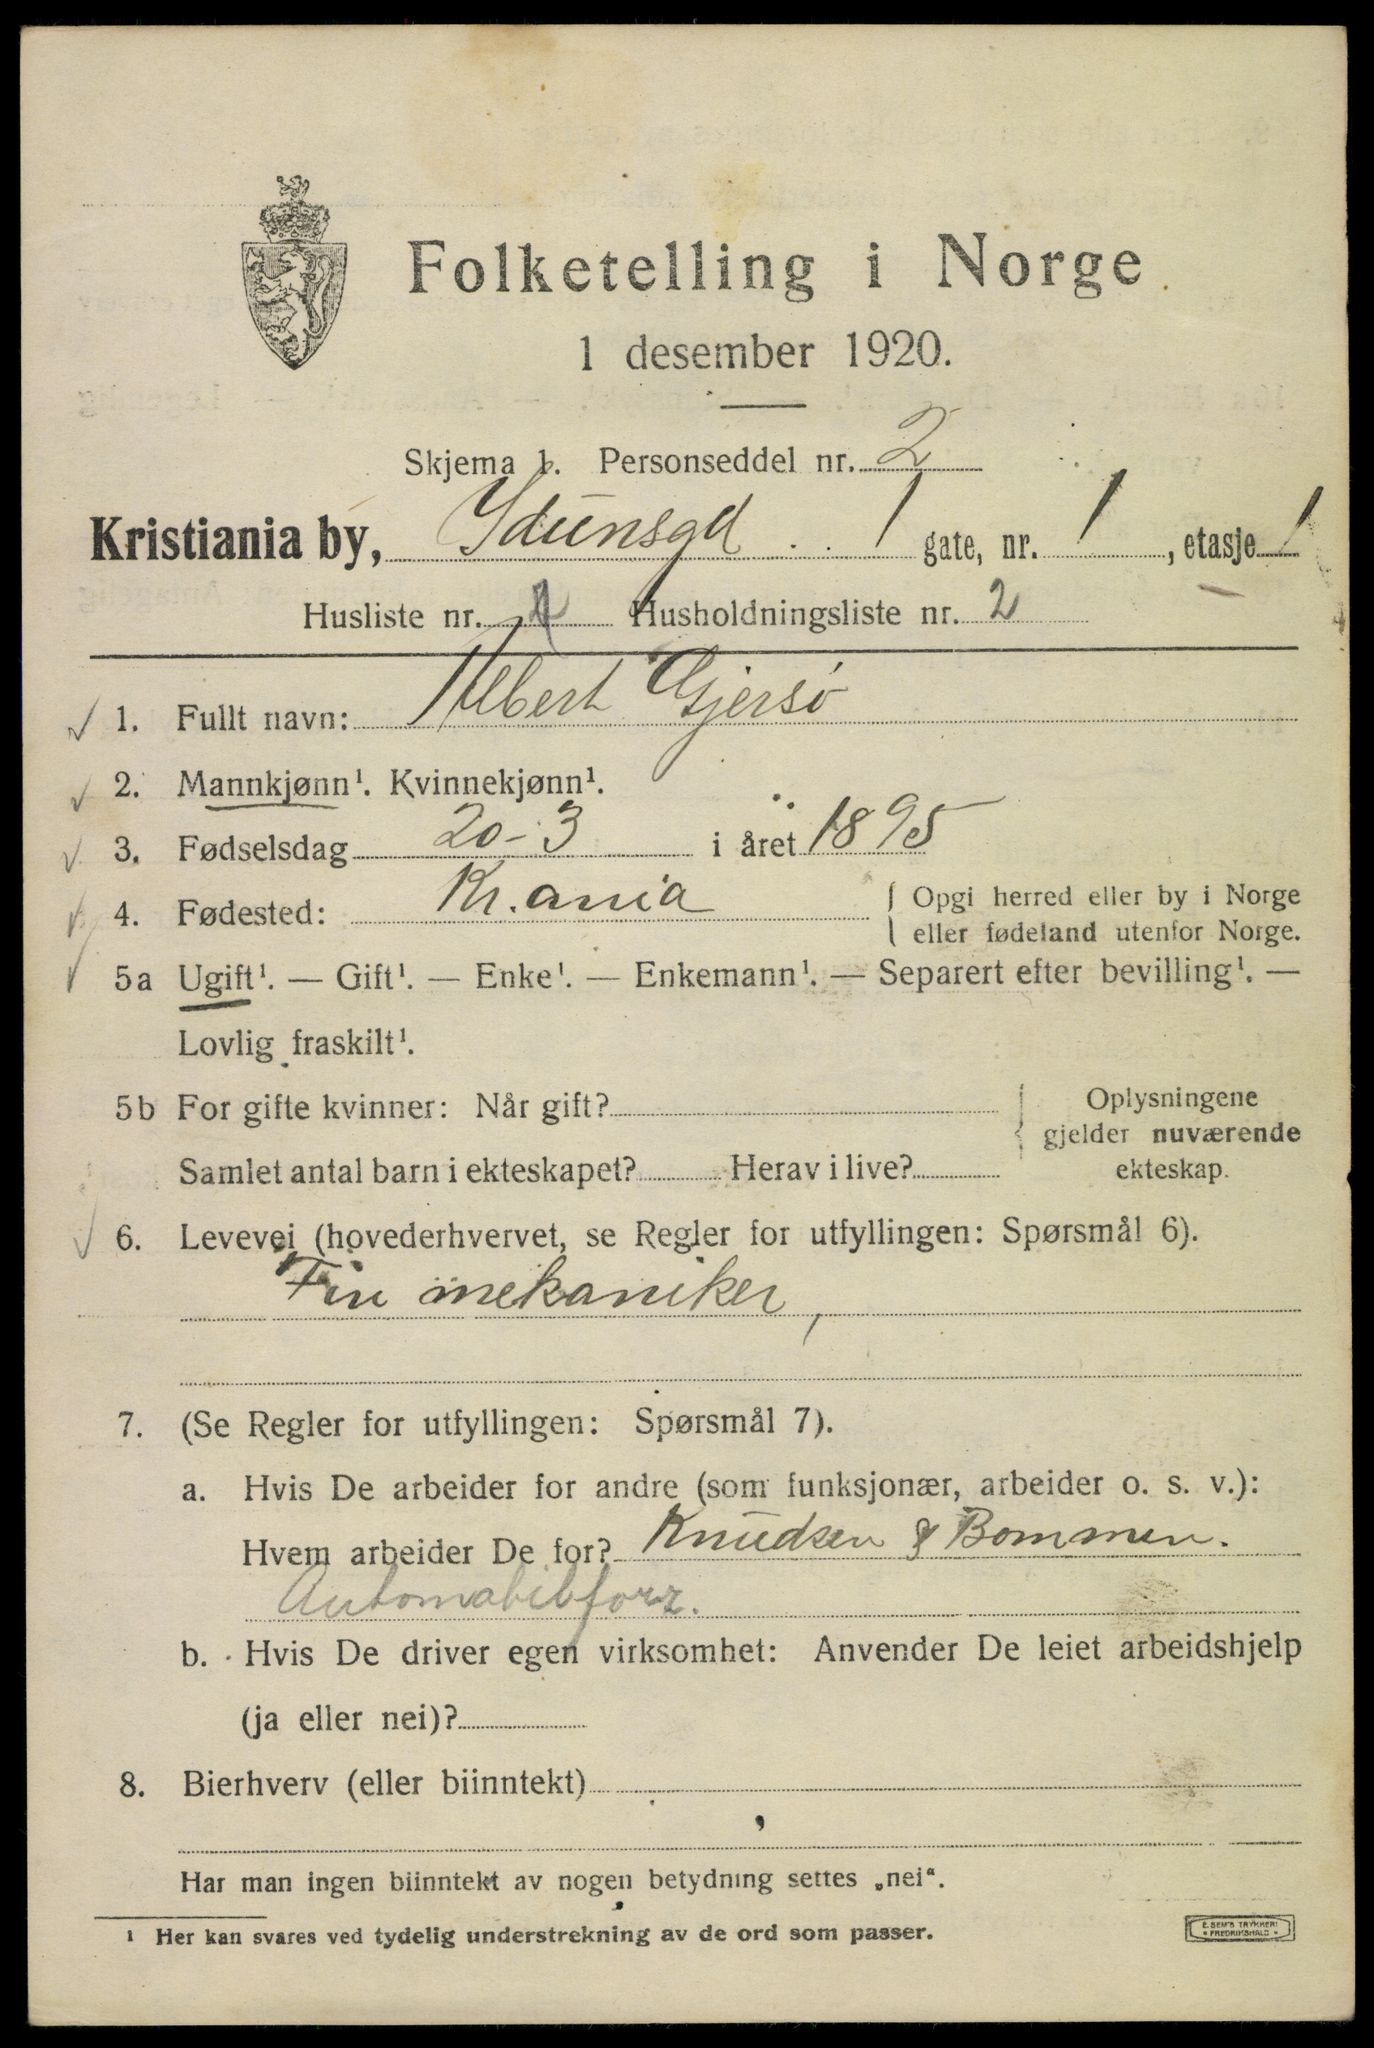 Folketelling i Norge
1 desember 1920.
Skjema 1. Personseddel nr. 2
Kristiania by, Ydunsgd 1 gate, nr. 1, etasje 1
Husliste nr. Husholdningsliste nr. 2
1. Fullt navn: Albert Gjersø
2. Mannkjønn¹. Kvinnekjønn¹.
3. Fødselsdag 20-3 i året 1895
4. Fødested: Kr.ania { Opgi herred eller by i Norge
eller fødeland utenfor Norge.
5a Ugift¹. — Gift¹. — Enke¹. — Enkemann¹. — Separert efter bevilling¹. —
Lovlig fraskilt¹.
5b For gifte kvinner: Når gift? { Oplysningene
gjelder nuværende
Samlet antal barn i ekteskapet? Herav i live? ekteskap.
6. Levevei (hovederhvervet, se Regler for utfyllingen: Spørsmål 6).
Fin mekaniker,
7. (Se Regler for utfyllingen: Spørsmål 7).
a. Hvis De arbeider for andre (som funksjonær, arbeider o. s. v.):
Hvem arbeider De for? Knudsen & Bommen.
Automobilforr.
b. Hvis De driver egen virksomhet: Anvender De leiet arbeidshjelp
(ja eller nei)?
8. Bierhverv (eller biinntekt)
Har man ingen biinntekt av nogen betydning settes „nei“.
¹ Her kan svares ved tydelig understrekning av de ord som passer.
E. SEM'S TRYKKERI
FREDRIKSHALD